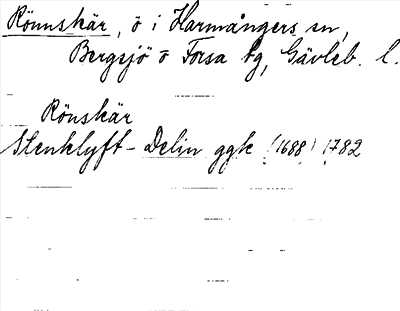 Rönnskär, ö i Harmångers sn,
Bergsjö o Forsa tg, Gävleb. l.
Rönskär
Stenklyft - Delin ggk (1688) 1782